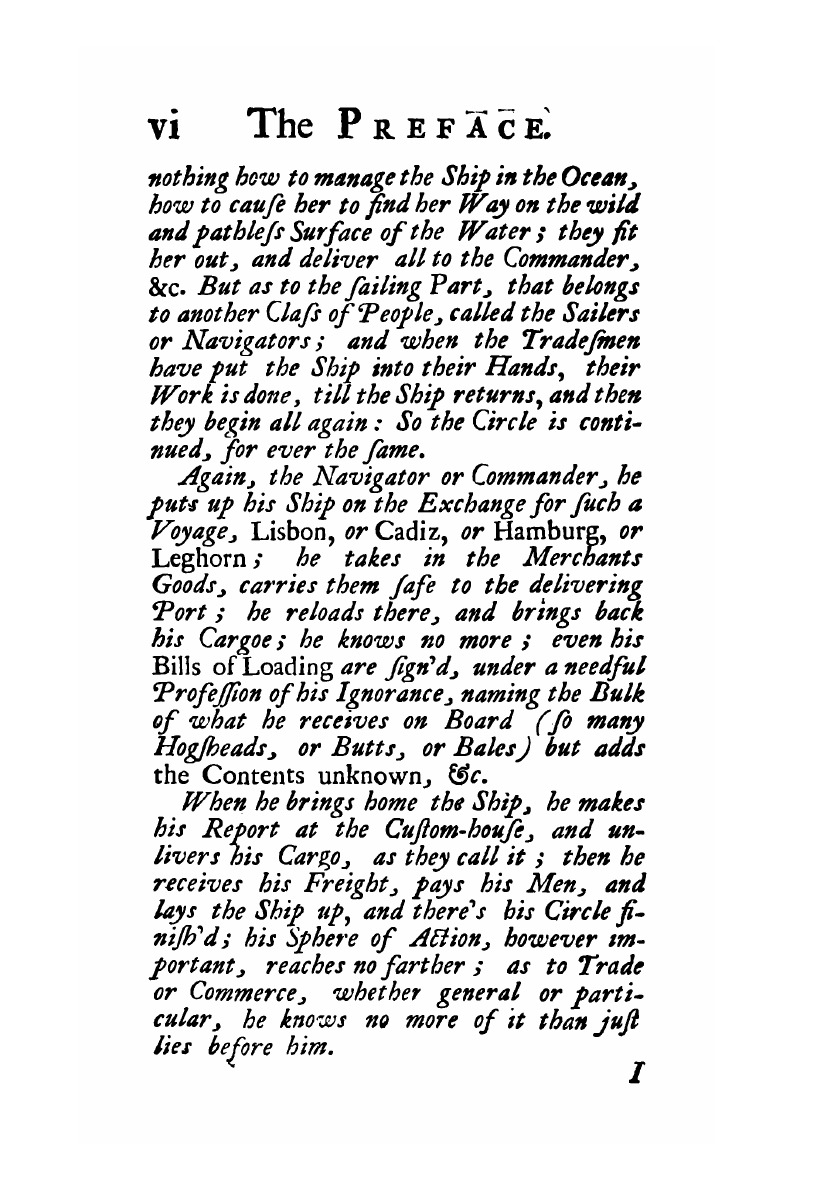 vi The PREFACE.
nothing how to manage the Ship in the Ocean,
how to cauſe her to find her Way on the wild
and pathleſs Surface of the Water; they fit
her out, and deliver all to the Commander,
&c. But as to the ſailing Part, that belongs
to another Claſs of People, called the Sailers
or Navigators; and when the Tradeſmen
have put the Ship into their Hands, their
Work is done, till the Ship returns, and then
they begin all again: So the Circle is conti-
nued, for ever the ſame.
Again, the Navigator or Commander, he
puts up his Ship on the Exchange for ſuch a
Voyage, Lisbon, or Cadiz, or Hamburg, or
Leghorn; he takes in the Merchants
Goods, carries them ſafe to the delivering
Port; he reloads there, and brings back
his Cargoe; he knows no more; even his
Bills of Loading are ſign'd, under a needful
Profeſſion of his Ignorance, naming the Bulk
of what he receives on Board (ſo many
Hogſheads, or Butts, or Bales) but adds
the Contents unknown, &c.
When he brings home the Ship, he makes
his Report at the Cuſtom-houſe, and un-
livers his Cargo, as they call it; then he
receives his Freight, pays his Men, and
lays the Ship up, and there's his Circle fi-
niſh'd; his Sphere of Action, however im-
portant, reaches no farther; as to Trade
or Commerce, whether general or parti-
cular, he knows no more of it than juſt
lies before him.
I